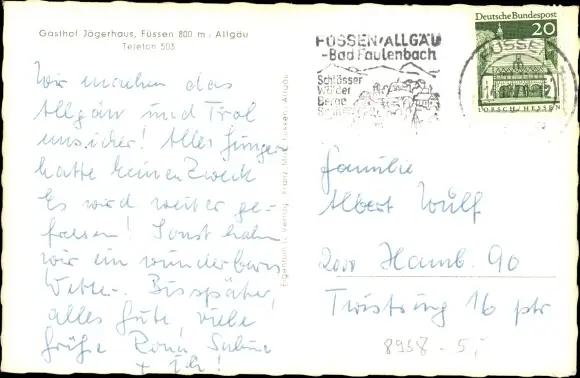 Gasthof Jägerhaus, Füssen 800 m, Allgäu
Telefon 503
FÜSSEN/ALLGÄU
-Bad Faulenbach
Schlösser
Wälder
Berge
Deutsche Bundespost
20
FÜSSEN
LORSCH/HESSEN
Wir machen das
Allgäu und Tirol
unsicher! Alles Hungern
hatte keinen Zweck
Es wird weiter ge-
fressen! Sonst haben
wir ein wunderbares
Wetter. Bis später,
alles Gute, viele
Grüße Rona, Sabine
+ Ich!
Eigentum u. Verlag: Franz Milz, Füssen, Allgäu
Familie
Albert Wulf
2000 Hamb. 90
Twistring 16 ptr
8958 - 5,-